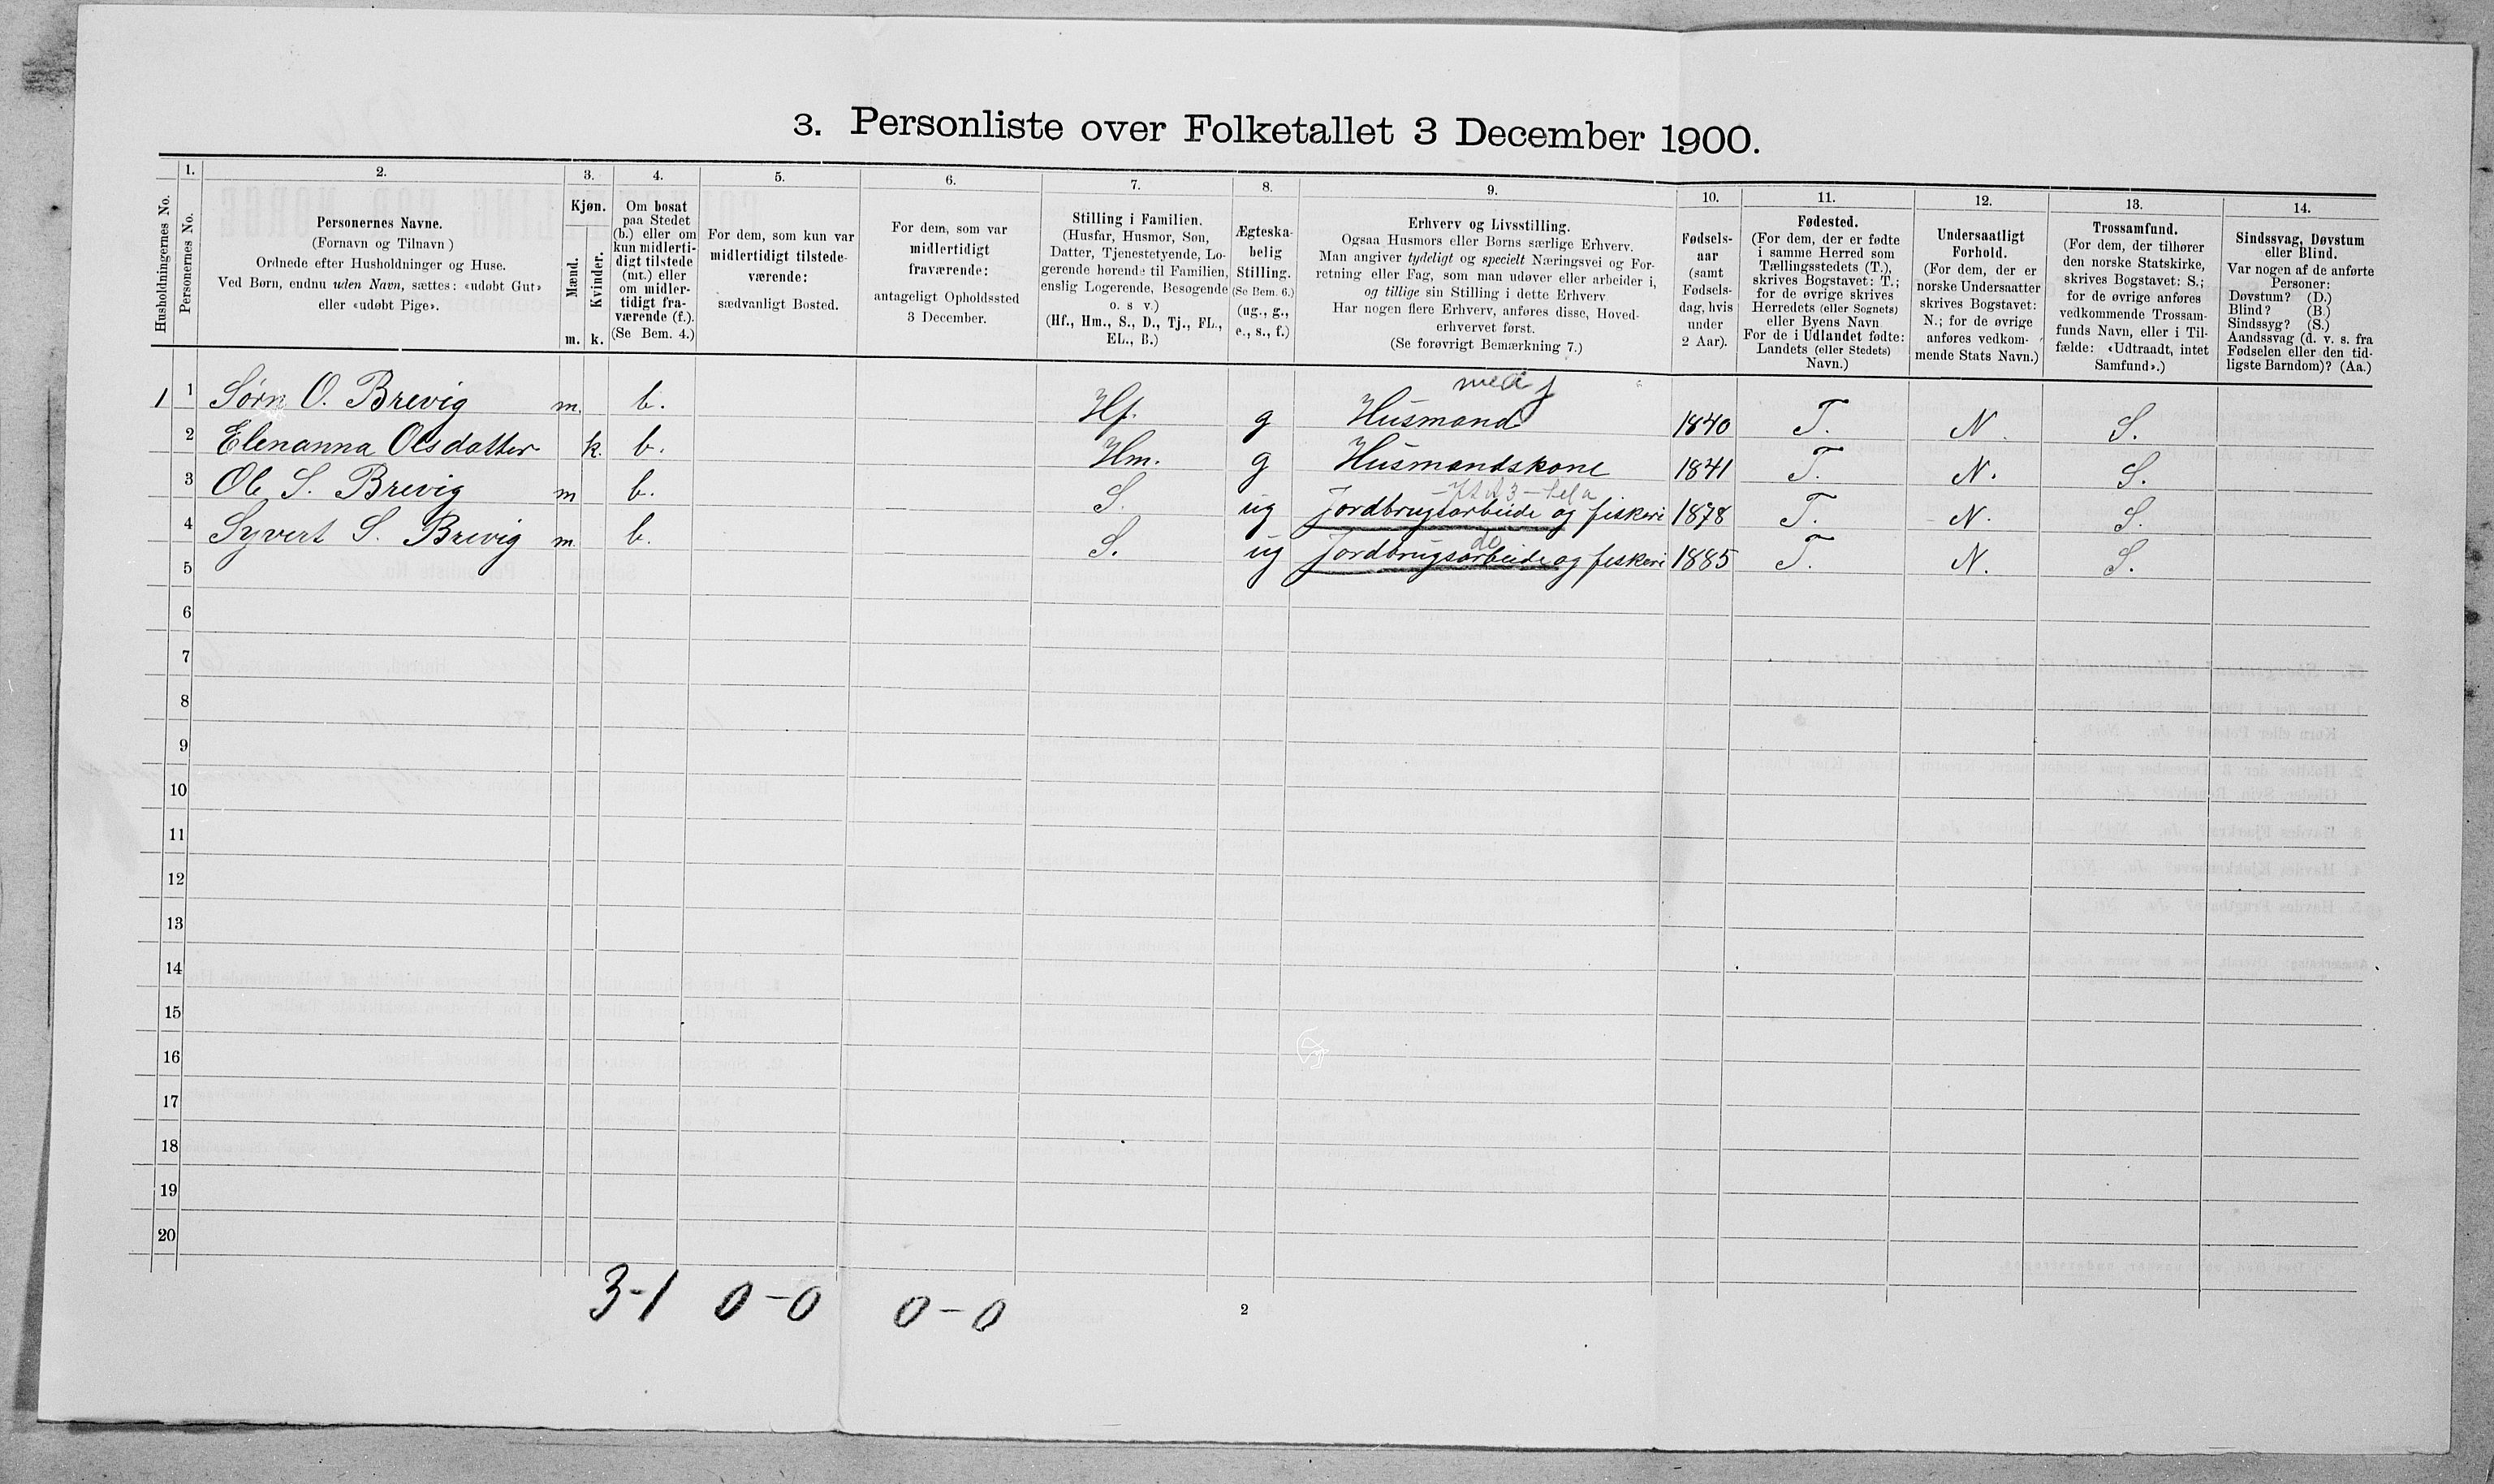 3. Personliste over Folketallet 3 December 1900.
Husholdningernes No.
1.
Personernes No.
2.
Personernes Navne.
(Fornavn og Tilnavn )
Ordnede efter Husholdninger og Huse.
Ved Børn, endnu uden Navn, sættes: «udøbt Gut»
eller «udøbt Pige».
3.
Kjøn.
Mænd.
m.
Kvinder.
k.
4.
Om bosat
paa Stedet
(b.) eller om
kun midlerti-
digt tilstede
(mt.) eller
om midler-
tidigt fra-
værende (f.).
(Se Bem. 4.)
5.
For dem, som kun var
midlertidigt tilstede-
værende:
sædvanligt Bosted.
6.
For dem, som var
midlertidigt
fraværende:
antageligt Opholdssted
3 December.
7.
Stilling i Familien.
(Husfar, Husmor, Søn,
Datter, Tjenestetyende, Lo-
gerende hørende til Familien,
enslig Logerende, Besøgende
o. s v.)
(Hf., Hm., S., D., Tj., FL.,
EL., B.)
8.
Ægteska-
belig
Stilling.
(Se Bem. 6.)
(ug., g.,
e., s., f.)
9.
Erhverv og Livsstilling.
Ogsaa Husmors eller Børns særlige Erhverv.
Man angiver tydeligt og specielt Næringsvei og For-
retning eller Fag, som man udøver eller arbeider i,
og tillige sin Stilling i dette Erhverv
Har nogen flere Erhverv, anføres disse, Hoved-
erhvervet først.
(Se forøvrigt Bemærkning 7.)
10.
Fødsels-
aar
(samt
Fødsels-
dag, hvis
under
2 Aar).
11.
Fødested.
(For dem, der er fødte
i samme Herred som
Tællingsstedets (T.),
skrives Bogstavet: T.;
for de øvrige skrives
Herredets (eller Sognets)
eller Byens Navn
For de i Udlandet fødte:
Landets (eller Stedets)
Navn.)
12.
Undersaatligt
Forhold.
(For dem, der er
norske Undersaatter
skrives Bogstavet:
N.; for de øvrige
anføres vedkom-
mende Stats Navn.)
13.
Trossamfund.
(For dem, der tilhører
den norske Statskirke,
skrives Bogstavet: S.;
for de øvrige anføres
vedkommende Trossam-
funds Navn, eller i Til-
fælde: «Udtraadt, intet
Samfund».)
14.
Sindssvag, Døvstum
eller Blind.
Var nogen af de anførte
Personer:
Døvstum? (D.)
Blind? (B.)
Sindssyg? (S.)
Aandssvag (d. v. s. fra
Fødselen eller den tid-
ligste Barndom)? (Aa.)
med j
1 1 Sørn O. Brevig m. b. Hf. g Husmand 1840 T. N. S.
2 Elenanna Olsdatter k. b. Hm. g Husmandskone 1841 T. N. S.
3 Ole S. Brevig m b. S. ug Jordbrugsarbeide og fiskeri 1878 T. N. S.
do
4 Syvert S. Brevig m. b. S. ug Jordbrugsarbeide og fiskeri 1885 T. N. S.
5
6
7
8
9
10
11
12
13
14
15
16
17
18
19
20
3-1 0-0 0-0
2